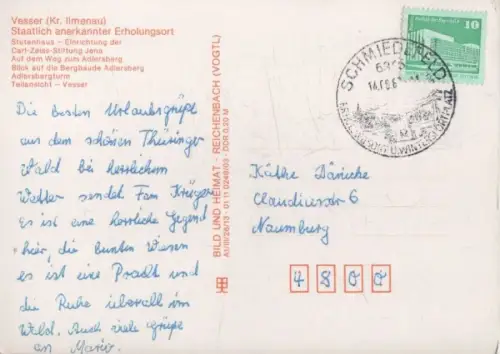 Vesser (Kr. Ilmenau)
Staatlich anerkannter Erholungsort
Stutenhaus – Einrichtung der
Carl-Zeiss-Stiftung Jena
Auf dem Weg zum Adlersberg
Blick auf die Bergbaude Adlersberg
Adlersbergturm
Teilansicht – Vesser
Die besten Urlaubsgrüße
aus dem schönen Thüringer
Wald bei herrlichem
Wetter sendet Fam. Krüger
Es ist eine herrliche Gegend
hier, die bunten Wiesen
es ist eine Pracht und
die Ruhe überall im
Wald. Auch viele Grüße
an Mario.
BILD UND HEIMAT · REICHENBACH (VOGTL)
DDR 0,20 M
10
SCHMIEDEFELD
ERHOLUNGSORT U. WINTERSPORTPLATZ
Käthe
Claudiusstr 6
Naumburg
4800